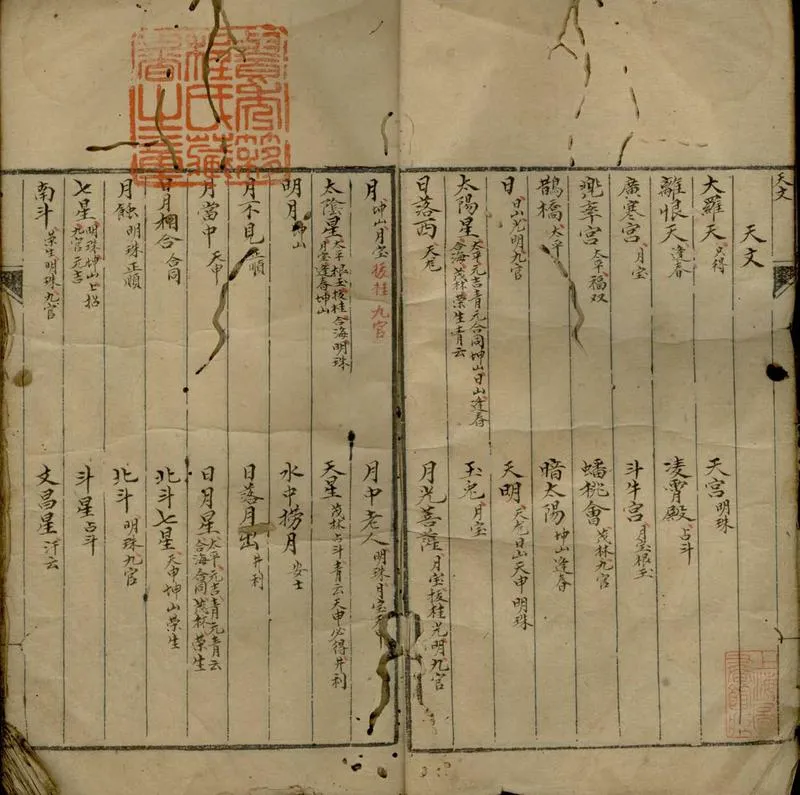 天文
天文
大羅天 只得 天宫 明珠
離恨天 逢春 凌霄殿 占斗
廣寒宮 月宝 斗牛宮 月宝根玉
兜率宮 太平福双 蟠桃會 茂林九官
鵲橋 太平 暗太陽 坤山逢春
日 日山光明九官 天明 日山天申明珠
太陽星 太平元吉青元合同坤山日山逢春 合海茂林荣生青云 玉兔 月宝
日落西 月光菩薩 月宝扳桂光明九官
月 坤山月宝扳桂九官 月中老人 明珠月宝
太陰星 太平根玉扳桂合海明珠 月宝逢春坤山 天星 茂林占斗青云天申必得井利
明月 坤山 水中撈月 安士
月不見 正順 日落月出 井利
月當中 天申 日月星 太平元吉青元青云 合海合同茂林荣生
日月相合 合同 北斗七星 天申坤山荣生
月蝕 明珠正順 北斗 明珠九官
七星 明珠坤山上招 九官元吉 斗星 占斗
南斗 荣生明珠九官 文昌星 汗云